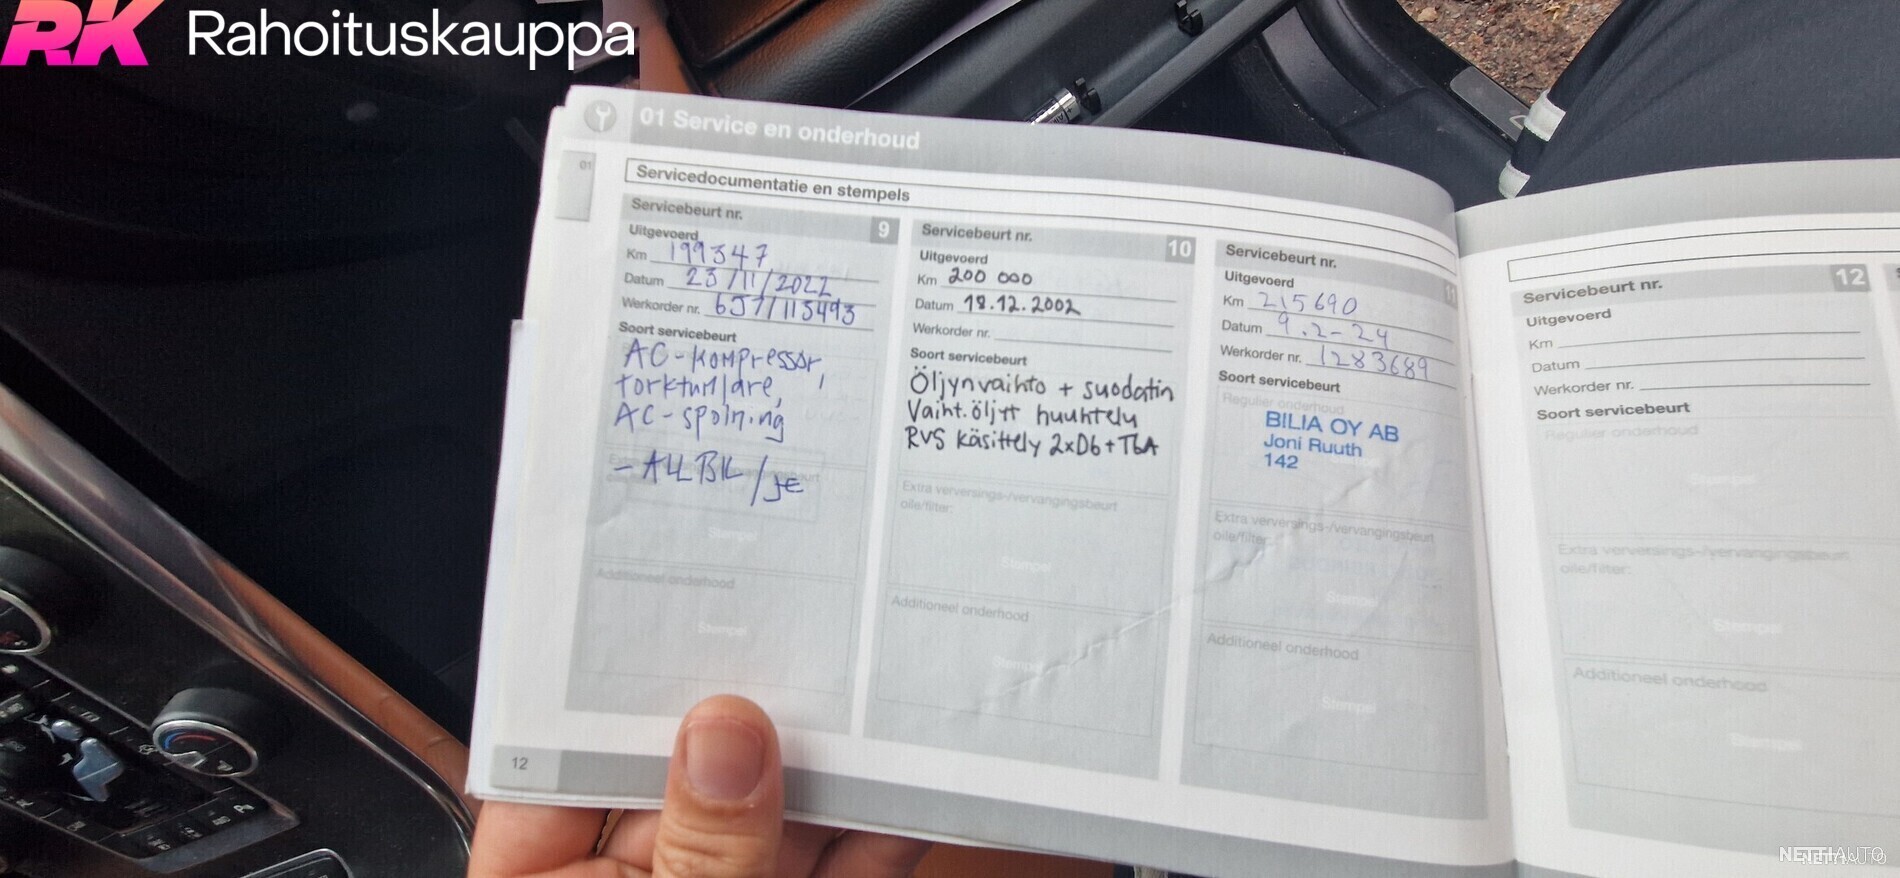 RK Rahoituskauppa
01 Service en onderhoud
01
Servicedocumentatie en stempels
Servicebeurt nr. 9
Uitgevoerd
Km 199347
Datum 23/11/2022
Werkorder nr. 657/115493
Soort servicebeurt
AC-kompressor,
torktumlare,
AC-spolning
Stempel
Additioneel onderhood
Stempel
Servicebeurt nr. 10
Uitgevoerd
Km 200 000
Datum 18.12.2002
Werkorder nr.
Soort servicebeurt
Öljynvaihto + suodatin
Vaiht.öljyt huuhtelu
RVS käsittely 2xD6+T6A
Extra verversings-/vervangingsbeurt
olie/filter:
Stempel
Additioneel onderhood
Stempel
Servicebeurt nr. 11
Uitgevoerd
Km 215690
Datum 9.2-24
Werkorder nr. 1283689
Soort servicebeurt
Regulier onderhoud
BILIA OY AB
Joni Ruuth
142
Extra verversings-/vervangingsbeurt
olie/filter:
Stempel
Additioneel onderhood
Stempel
12
Servicebeurt nr. 12
Uitgevoerd
Km
Datum
Werkorder nr.
Soort servicebeurt
Regulier onderhoud
Stempel
Extra verversings-/vervangingsbeurt
olie/filter:
Stempel
Additioneel onderhood
Stempel
NETTIAUTO